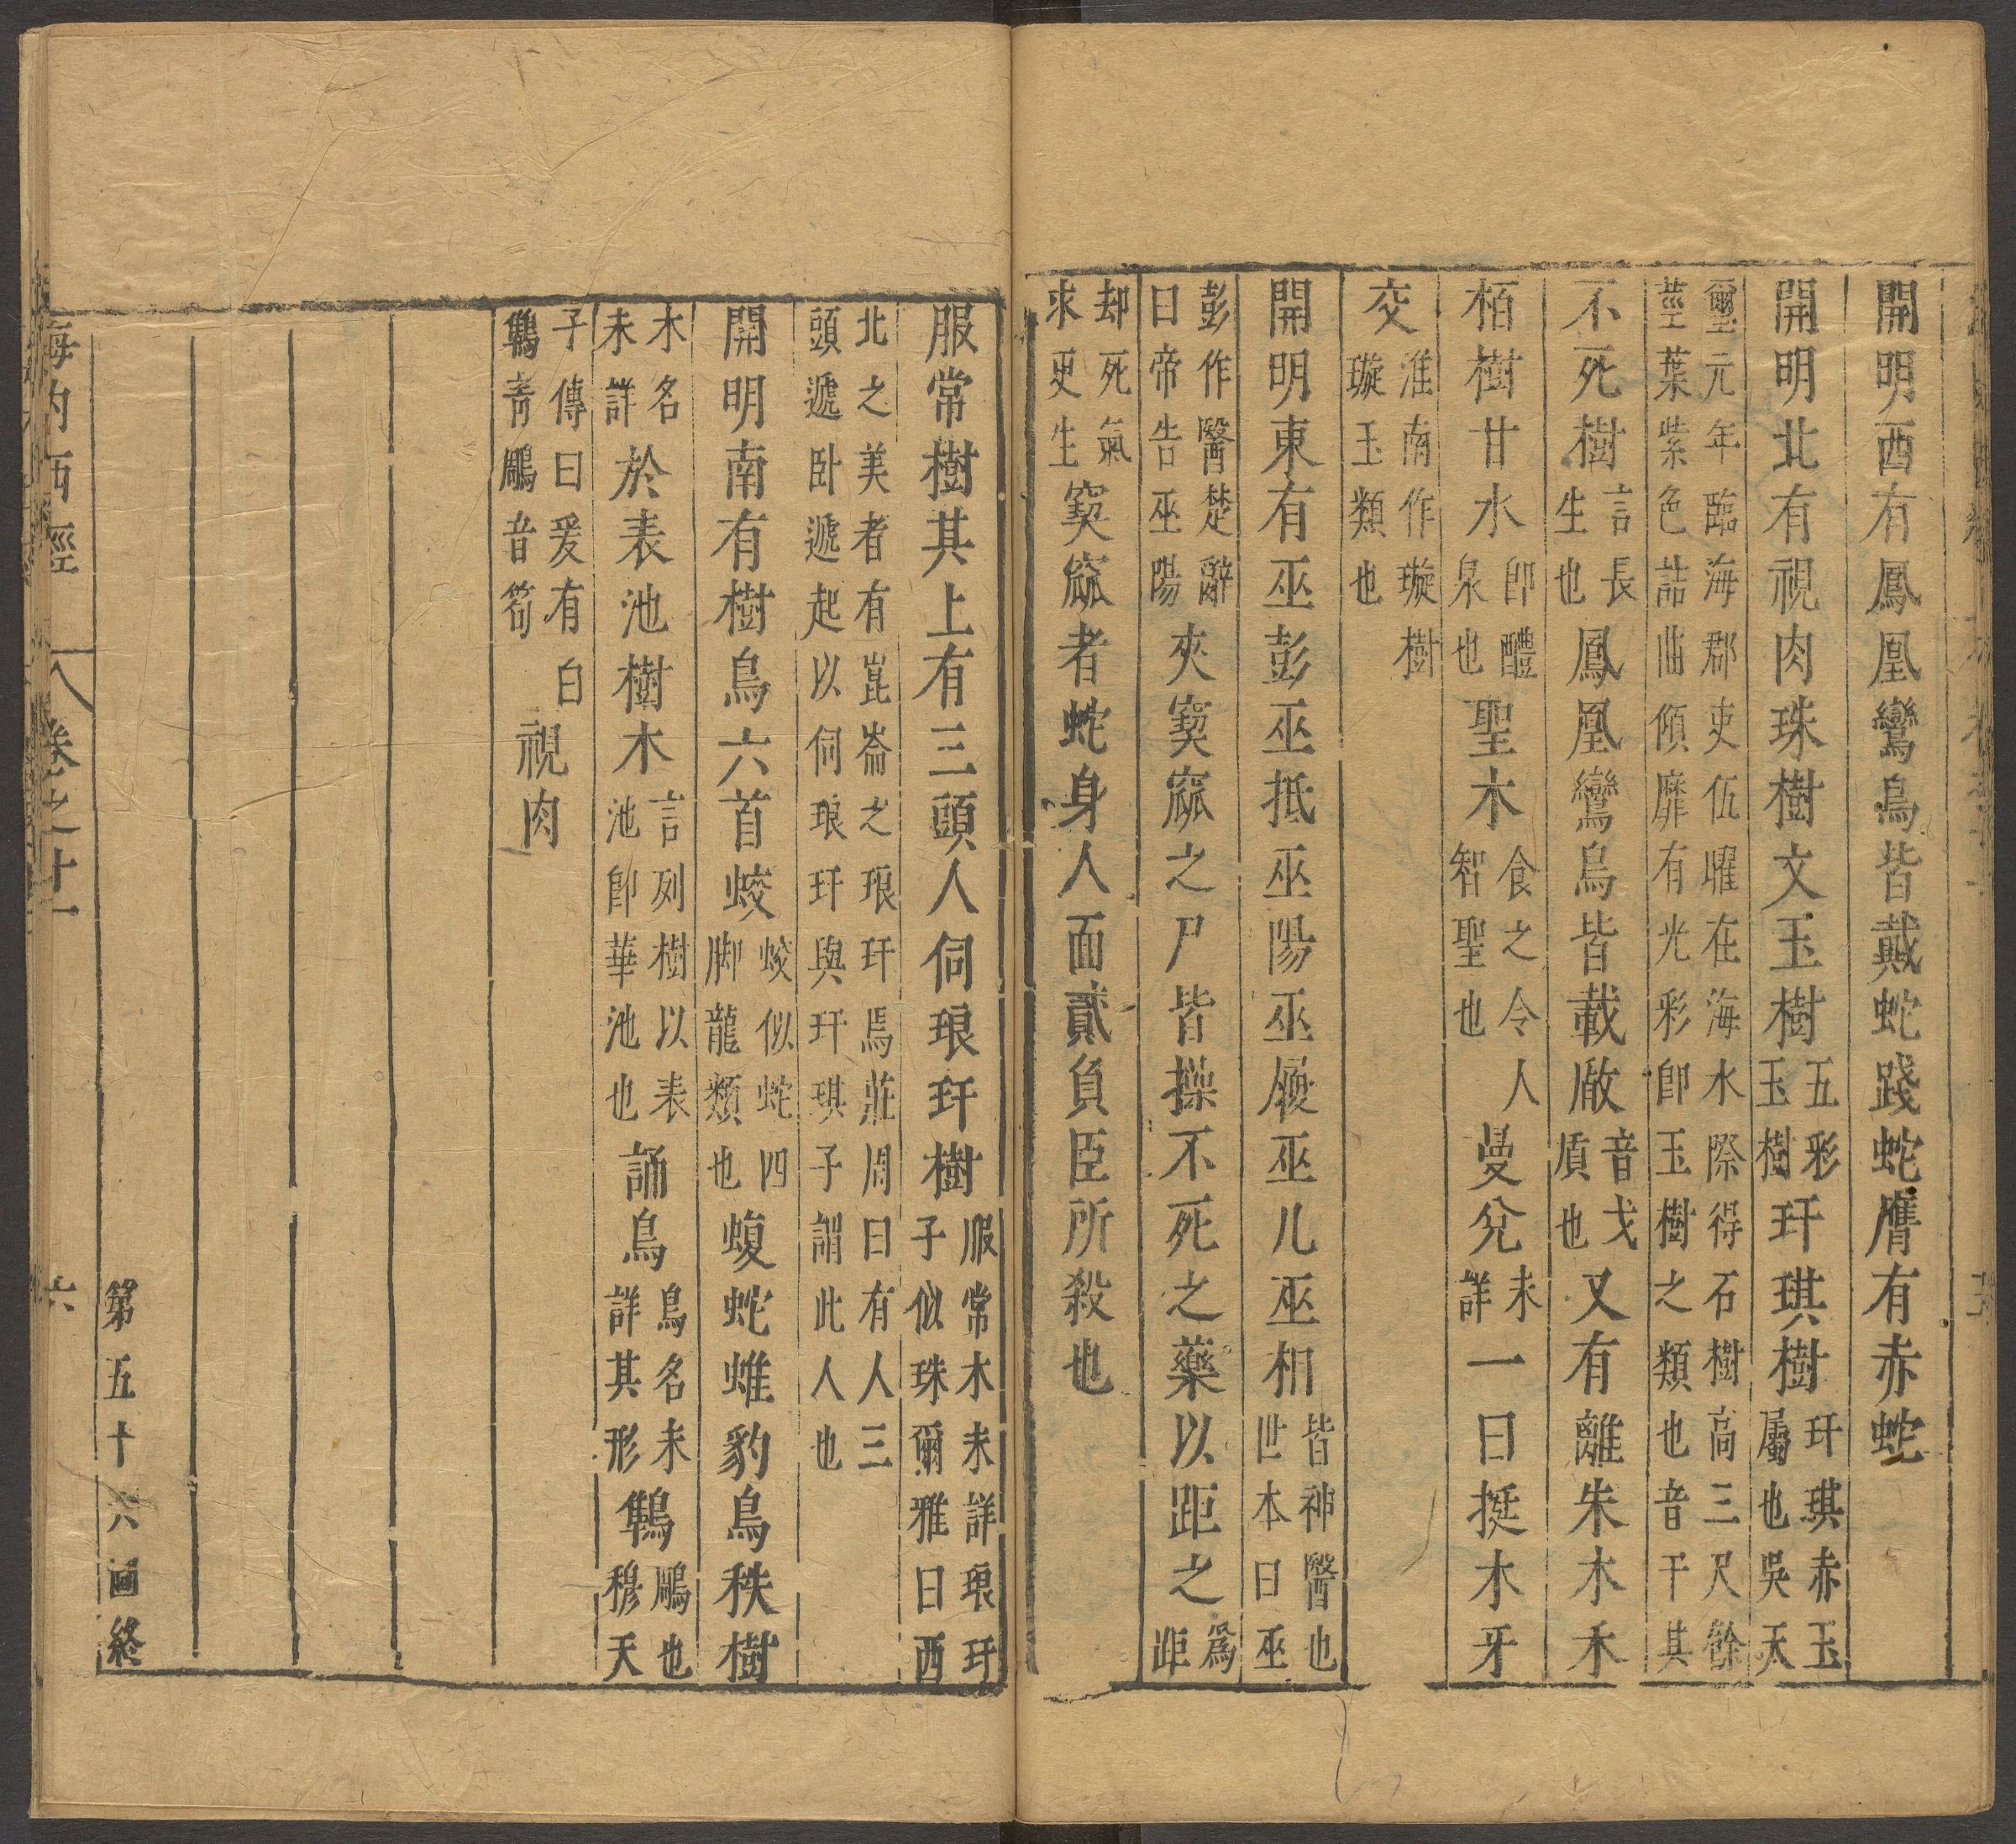 開明西有鳳凰鸞鳥皆戴蛇踐蛇膺有赤蛇
開明北有視肉珠樹文玉樹五彩玉樹玗琪樹玗琪赤玉屬也吳天
璽元年臨海郡吏伍曜在海水際得石樹高三尺餘莖葉紫色詰曲傾靡有光彩卽玉樹之類也音干其
不死樹言長生也鳳凰鸞鳥皆載瞂音戈盾也又有離朱木禾
栢樹甘水卽醴泉也聖木食之令人智聖也曼兌未詳一曰挺木牙
交淮南作璇樹璇玉類也
開明東有巫彭巫抵巫陽巫履巫凡巫相皆神醫也世本曰巫
彭作醫楚辭曰帝告巫陽夾窫窳之尸皆操不死之藥以距之爲距
却死氣求更生窫窳者蛇身人面貳負臣所殺也
服常樹其上有三頭人伺琅玕樹服常木未詳琅玕子似珠爾雅曰西
北之美者有崑崙之琅玕焉莊周曰有人三頭遞臥遞起以伺琅玕與玕琪子謂此人也
開明南有樹鳥六首蛟蛟似蛇四脚龍類也蝮蛇蜼豹鳥秩樹
木名未詳於表池樹木言列樹以表池卽華池也誦鳥鳥名未詳其形鶽鵰也穆天
子傳曰爰有白鶽青鵰音笋視肉
海內西經 卷之十一 六
第五十六圖終